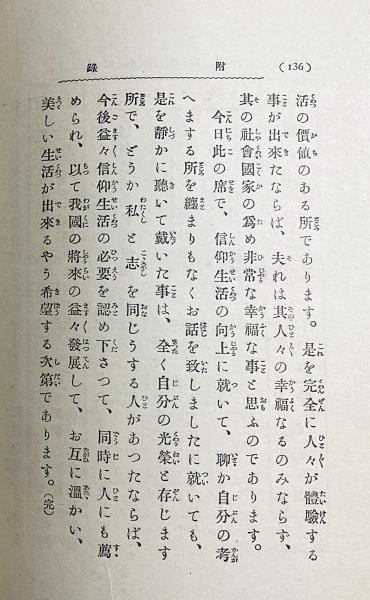 (136)
附錄
活の價値のある所であります。是を完全に人々が體驗する
事が出來たならば、夫れは其人々の幸福なるのみならず、
其の社會國家の爲め非常な幸福な事と思ふのであります。
今日此の席で、信仰生活の向上に就いて、聊か自分の考
へまする所を纏まりもなくお話を致しましたに就いても、
是を靜かに聽いて戴いた事は、全く自分の光榮と存じます
所で、どうか私と志を同じうする人があつたならば、
今後益々信仰生活の必要を認め下さつて、同時に人にも薦
められ、以て我國の將來の益々發展して、お互に溫かい、
美しい生活が出來るやう希望する次第であります。(完)